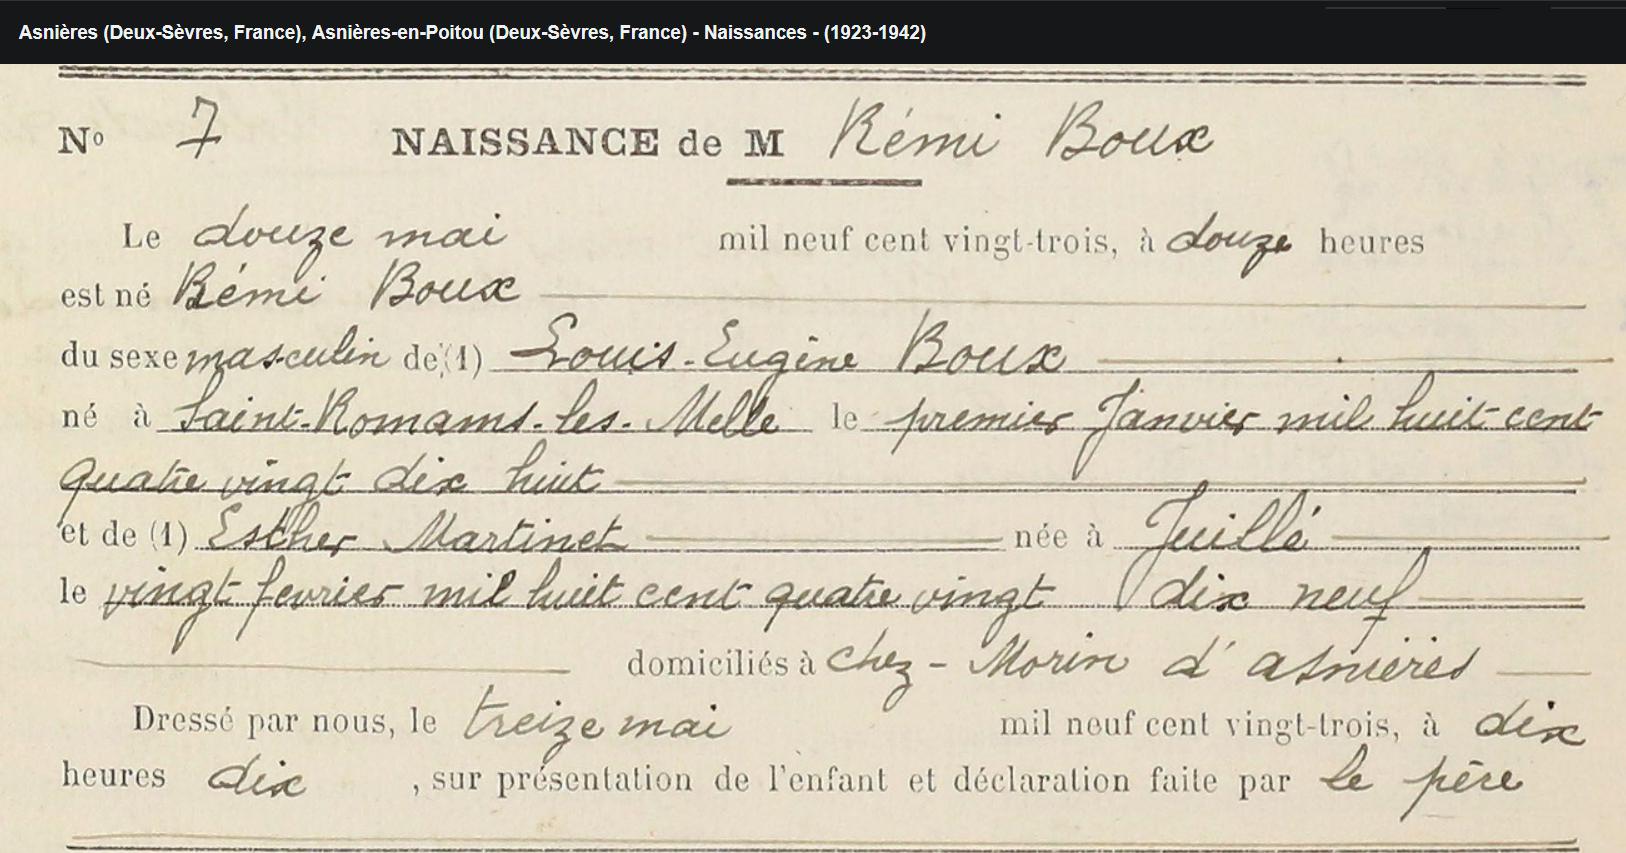 Asnières (Deux-Sèvres, France), Asnières-en-Poitou (Deux-Sèvres, France) - Naissances - (1923-1942)
Nº 7 NAISSANCE de M Rémi Boux
Le douze mai mil neuf cent vingt-trois, à douze heures
est né Rémi Boux
du sexe masculin de (1) Louis-Eugène Boux
né à Saint-Romans-les-Melle le premier Janvier mil huit cent
quatre vingt dix huit
et de (1) Esther Martinet née à Juillé
le vingt fevrier mil huit cent quatre vingt dix neuf
domiciliés à chez-Morin d'asnières
Dressé par nous, le treize mai mil neuf cent vingt-trois, à dix
heures dix , sur présentation de l'enfant et déclaration faite par le père